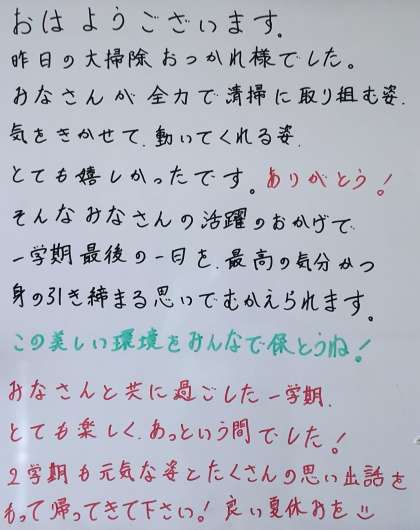 おはようございます。
昨日の大掃除おつかれ様でした。
みなさんが全力で清掃に取り組む姿、
気をきかせて、動いてくれる姿、
とても嬉しかったです。ありがとう！
そんなみなさんの活躍のおかげで
一学期最後の一日を、最高の気分かつ
身の引き締まる思いでむかえられます。
この美しい環境をみんなで保とうね！
みなさんと共に過ごした一学期、
とても楽しく、あっという間でした！
2学期も元気な姿とたくさんの思い出話を
もって帰ってきて下さい！良い夏休みを